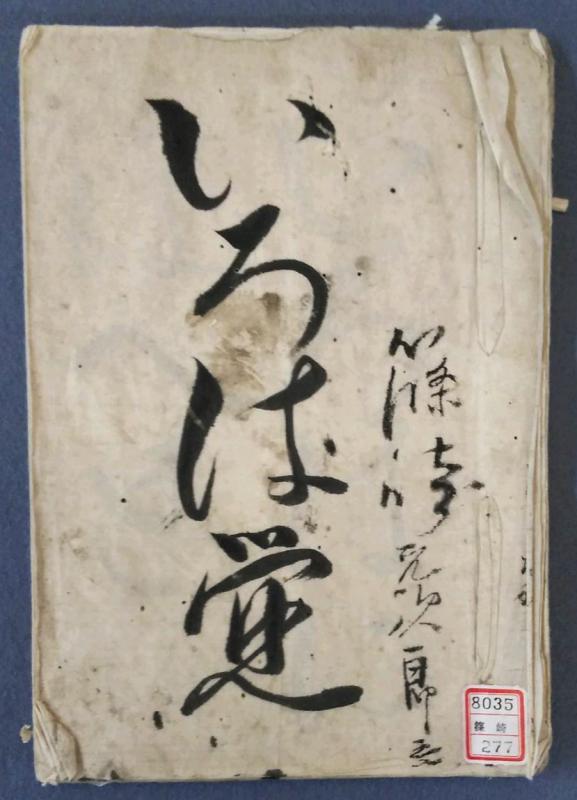 いろは覚
篠崎
次郎
8035
篠崎
277